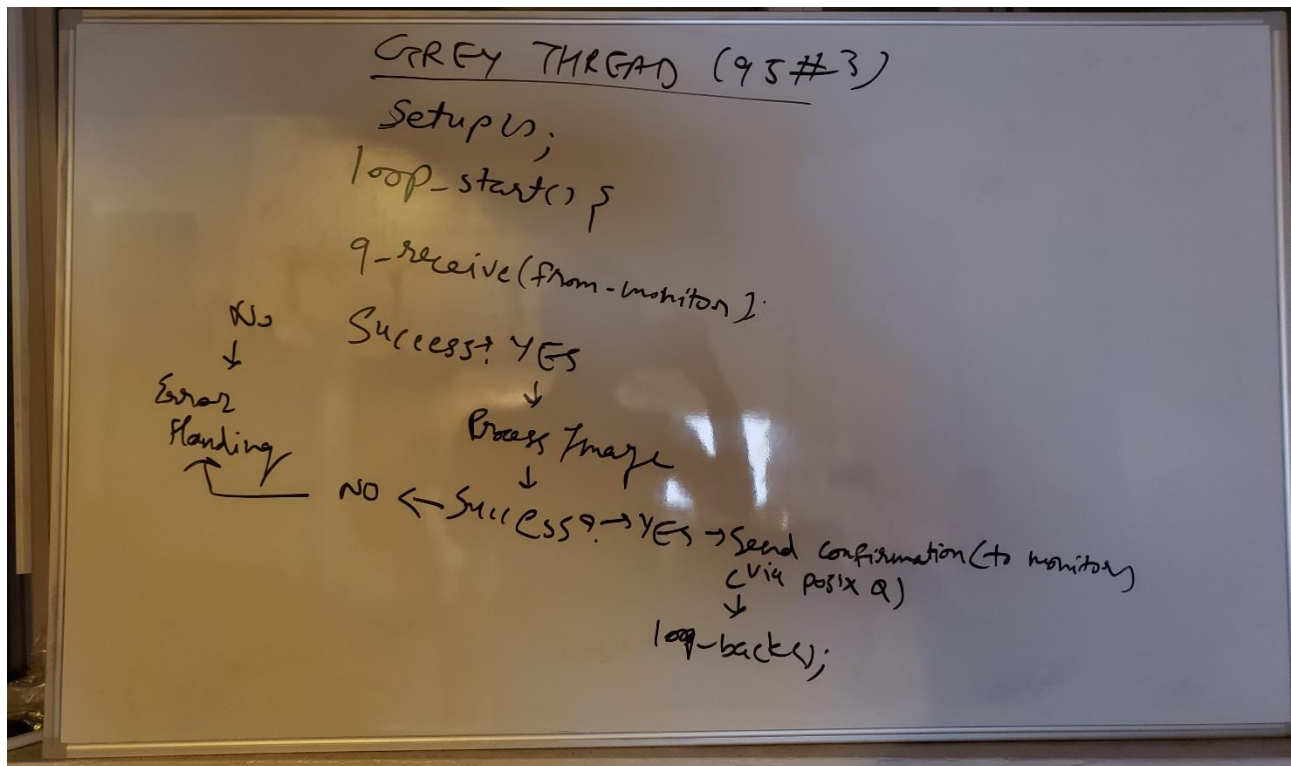 GREY THREAD (95#3)
Setup();
loop_start() {
q_receive(from-monitor);
No Success? YES
Error
Handling
Process Image
NO ← Success? → YES → Send confirmation (to monitor)
(via posix Q)
loop-back();